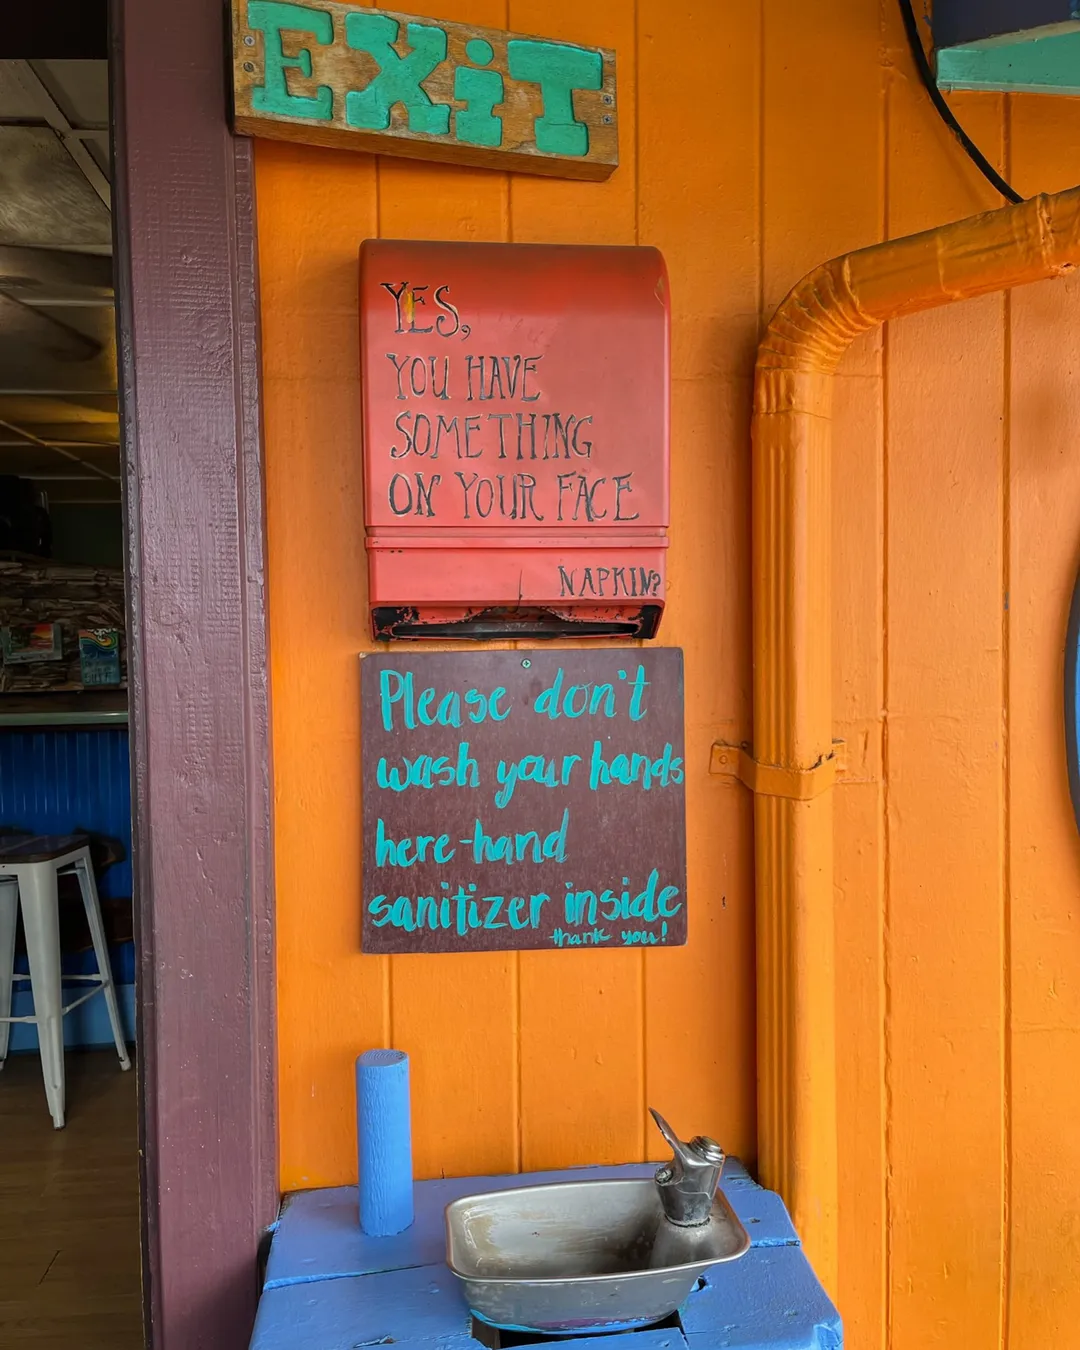 EXiT
YES,
YOU HAVE
SOMETHING
ON YOUR FACE
NAPKIN?
Please don't
wash your hands
here-hand
sanitizer inside
thank you!